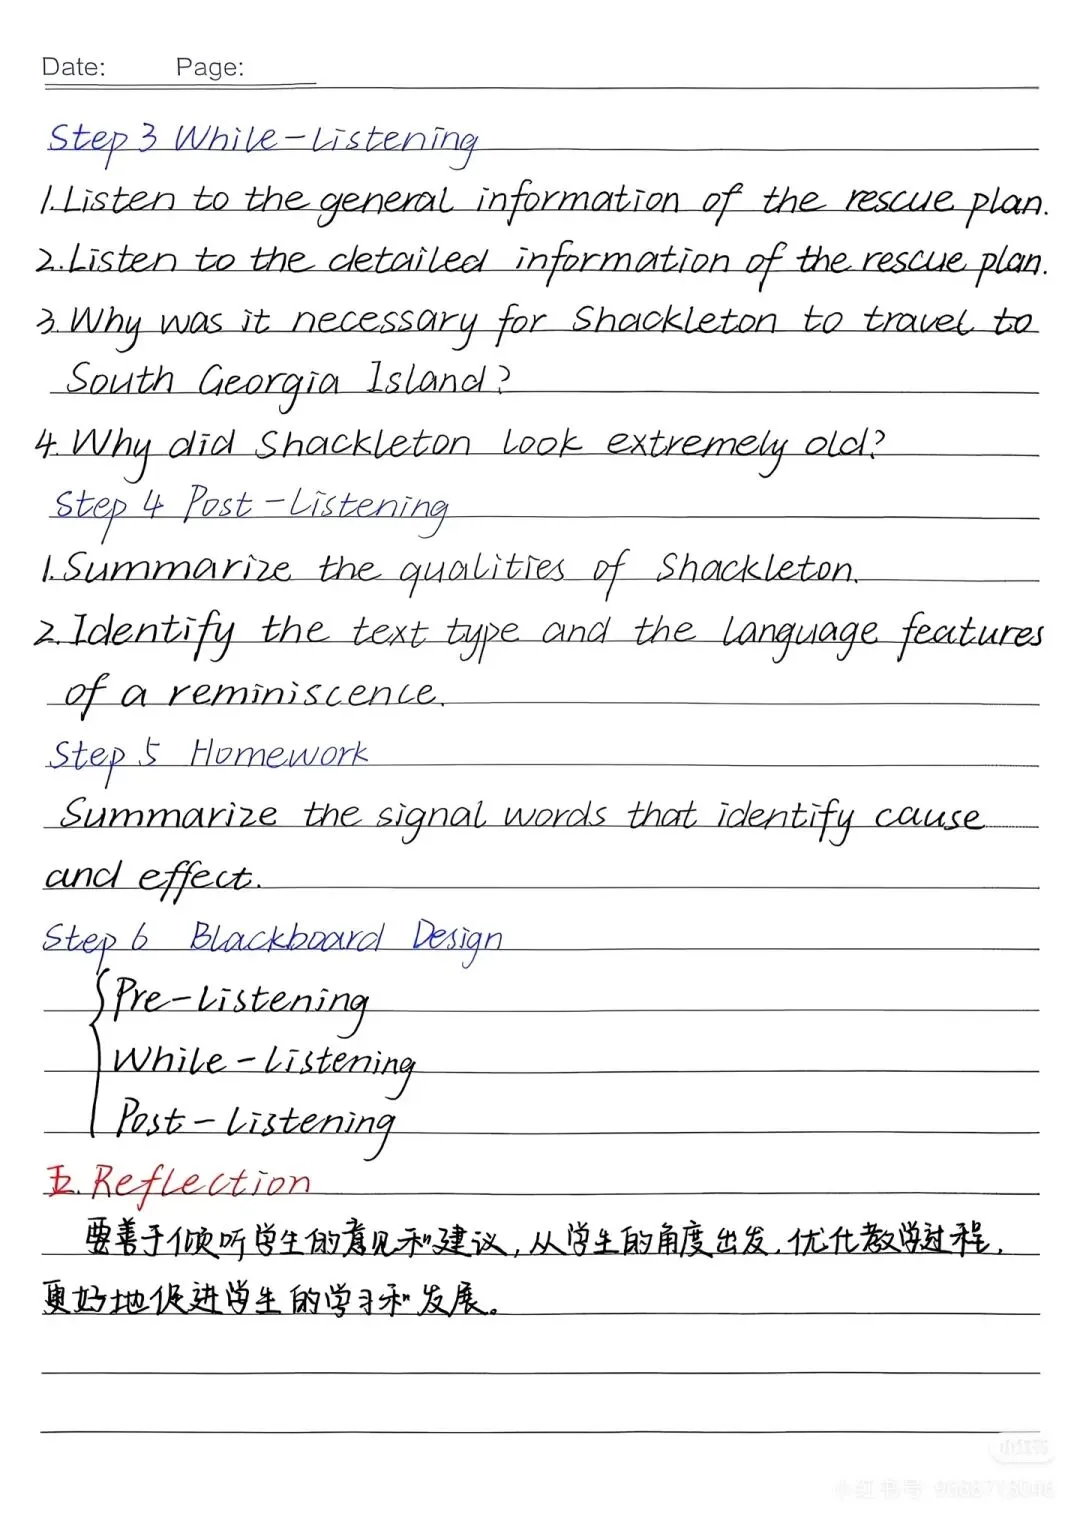 Date: Page:
Step 3 While-Listening
1.Listen to the general information of the rescue plan.
2.Listen to the detailed information of the rescue plan.
3.Why was it necessary for Shackleton to travel to
South Georgia Island?
4.Why did Shackleton look extremely old?
Step 4 Post-Listening
1.Summarize the qualities of Shackleton.
2.Identify the text type and the language features
of a reminiscence.
Step 5 Homework
Summarize the signal words that identify cause
and effect.
Step 6 Blackboard Design
Pre-Listening
While-Listening
Post-Listening
五.Reflection
要善于倾听学生的意见和建议,从学生的角度出发,优化教学过程,
更好地促进学生的学习和发展。
小红书
小红书号